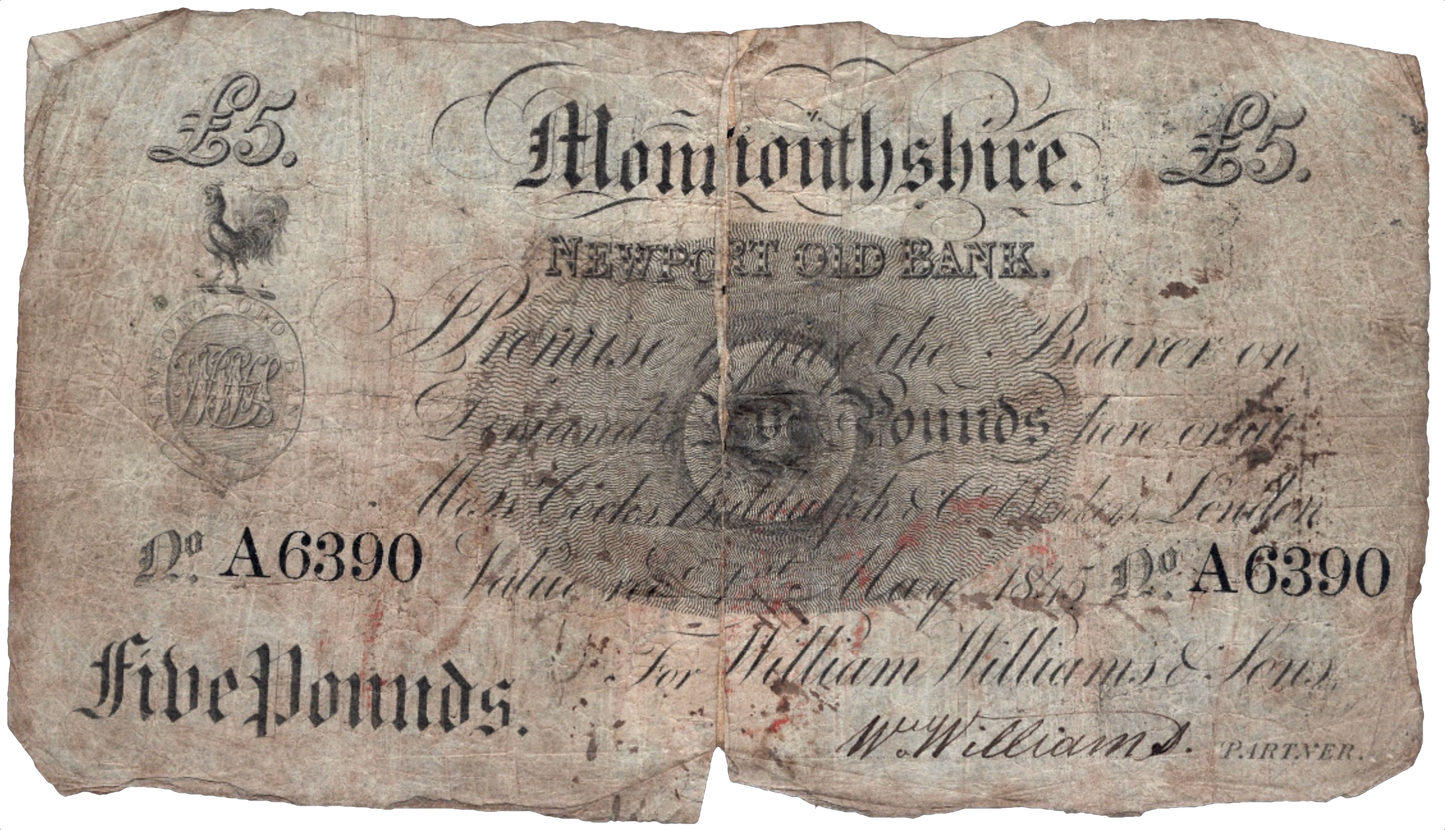 £5. Monmouthshire. £5.
NEWPORT OLD BANK.
NEWPORT OLD BANK
I Promise to pay the Bearer on
Demand Five Pounds here or at
Messrs Cocks, Biddulph & Co. Bankers, London,
Value recd. 1st May 1845
No. A6390 No. A6390
Five Pounds. For William Williams & Sons,
Wm. Williams. PARTNER.